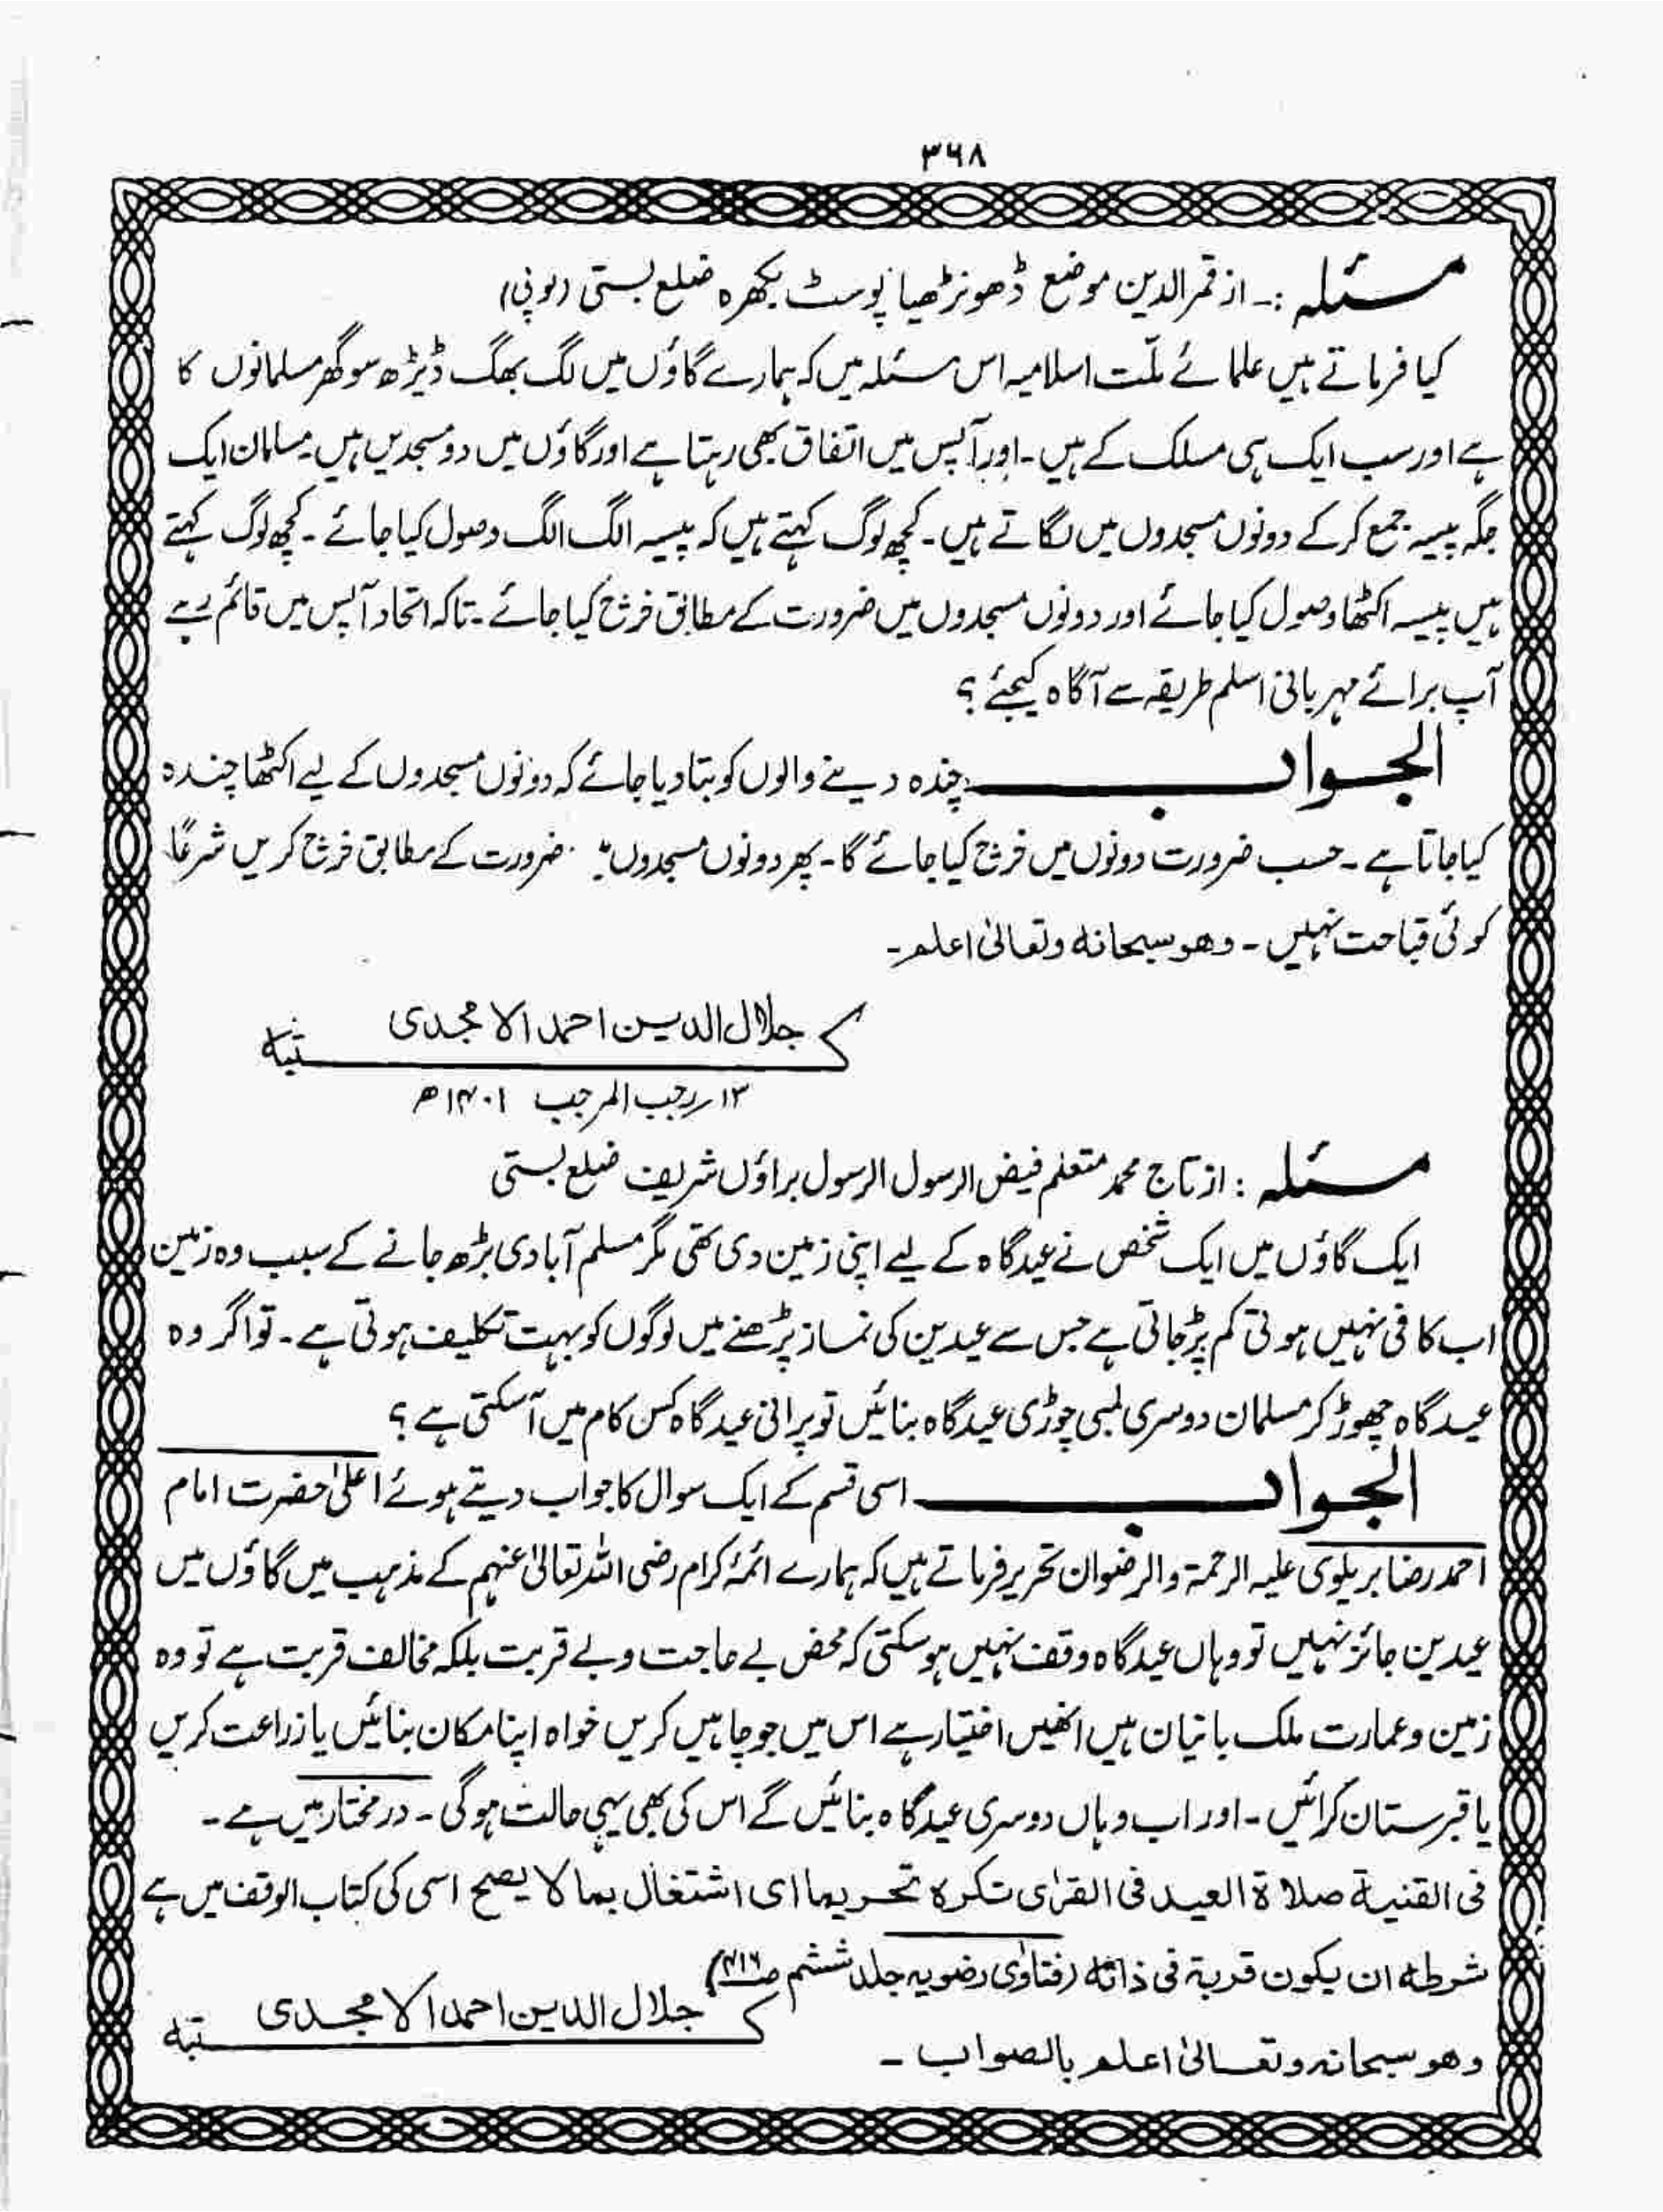 ۳۶۸
مسئلہ :۔ از قمر الدین موضع ڈھونڑھیا پوسٹ بکھرہ ضلع بستی (یوپی)
کیا فرماتے ہیں علمائے ملّت اسلامیہ اس مسئلہ میں کہ ہمارے گاؤں میں لگ بھگ ڈیڑھ سو گھر مسلمانوں کا
ہے اور سب ایک ہی مسلک کے ہیں۔ اور آپس میں اتفاق بھی رہتا ہے اور گاؤں میں دو مسجدیں ہیں۔ مسلمان ایک
جگہ پیسہ جمع کر کے دونوں مسجدوں میں لگاتے ہیں۔ کچھ لوگ کہتے ہیں کہ پیسہ الگ الگ وصول کیا جائے۔ کچھ لوگ کہتے
ہیں پیسہ اکٹھا وصول کیا جائے اور دونوں مسجدوں میں ضرورت کے مطابق خرچ کیا جائے۔ تاکہ اتحاد آپس میں قائم رہے
آپ برائے مہربانی اسلم طریقہ سے آگاہ کیجئے؟
الجواب چندہ دینے والوں کو بتا دیا جائے کہ دونوں مسجدوں کے لیے اکٹھا چندہ
کیا جاتا ہے۔ حسب ضرورت دونوں میں خرچ کیا جائے گا۔ پھر دونوں مسجدوں ضرورت کے مطابق خرچ کریں شرعًا
کوئی قباحت نہیں۔ وھو سبحانہ وتعالیٰ اعلم۔
کتبہ جلال الدین احمد الامجدی
۱۳؍ رجب المرجب ۱۴۰۱ھ
مسئلہ : از تاج محمد متعلم فیض الرسول الرسول براؤں شریف ضلع بستی
ایک گاؤں میں ایک شخص نے عیدگاہ کے لیے اپنی زمین دی تھی مگر مسلم آبادی بڑھ جانے کے سبب وہ زمین
اب کافی نہیں ہوتی کم پڑ جاتی ہے جس سے عیدین کی نماز پڑھنے میں لوگوں کو بہت تکلیف ہوتی ہے۔ تو اگر وہ
عیدگاہ چھوڑ کر مسلمان دوسری لمبی چوڑی عیدگاہ بنائیں تو پرانی عیدگاہ کس کام میں آسکتی ہے؟
الجواب اسی قسم کے ایک سوال کا جواب دیتے ہوئے اعلیٰ حضرت امام
احمد رضا بریلوی علیہ الرحمۃ والرضوان تحریر فرماتے ہیں کہ ہمارے ائمۂ کرام رضی اللہ تعالیٰ عنہم کے مذہب میں گاؤں میں
عیدین جائز نہیں تو وہاں عیدگاہ وقف نہیں ہوسکتی کہ محض بے حاجت و بے قربت بلکہ مخالف قربت ہے تو وہ
زمین و عمارت ملک بانیان ہیں انھیں اختیار ہے اس میں جو چاہیں کریں خواہ اپنا مکان بنائیں یا زراعت کریں
یا قبرستان کرائیں۔ اور اب وہاں دوسری عیدگاہ بنائیں گے اس کی بھی یہی حالت ہوگی۔ در مختار میں ہے۔
فی القنیۃ صلاۃ العید فی القرٰی تکرہ تحریما ای اشتغال بما لا یصح اسی کی کتاب الوقف میں ہے
شرطہ ان یکون قربۃ فی ذاتہ (فتاویٰ رضویہ جلد ششم ص۴۱۶)
کتبہ جلال الدین احمد الامجدی
وھو سبحانہ وتعالیٰ اعلم بالصواب۔